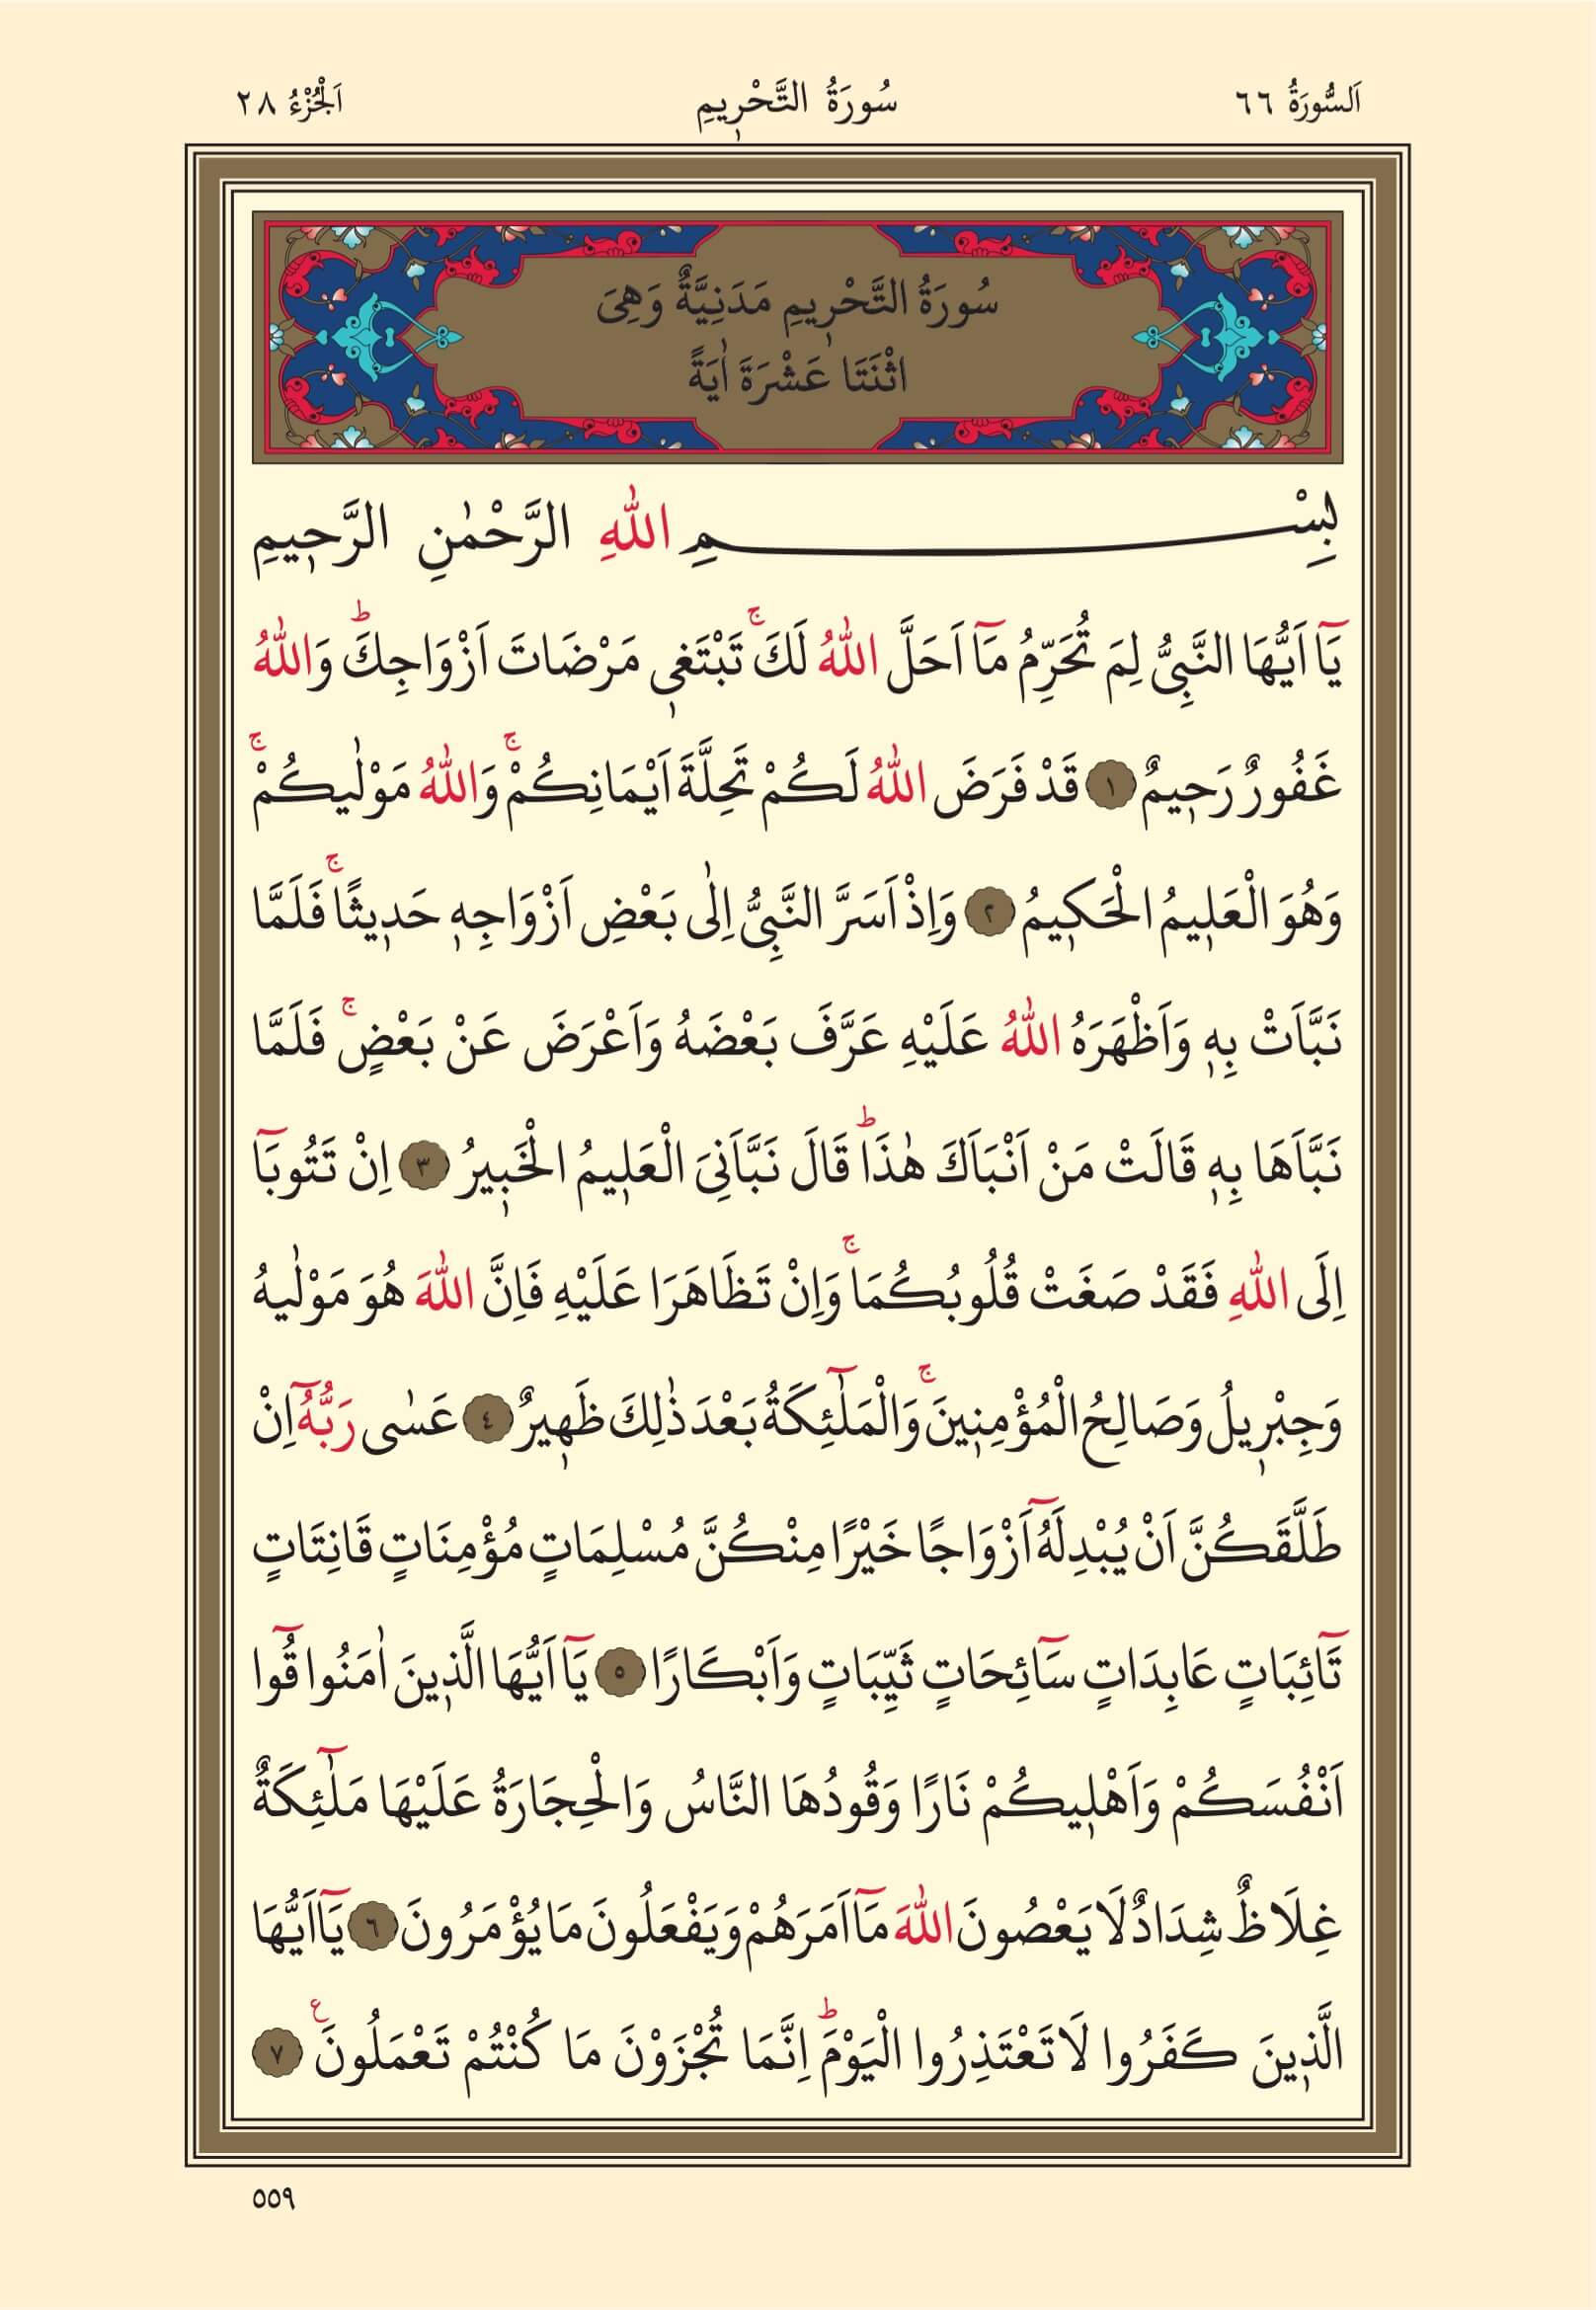 اَلسُّورَةُ ٦٦ سُورَةُ التَّحْرٖيمِ اَلْجُزْءُ ٢٨
سُورَةُ التَّحْرٖيمِ مَدَنِيَّةٌ وَهِىَ
اثْنَتَا عَشْرَةَ اٰيَةً
بِسْمِ اللّٰهِ الرَّحْمٰنِ الرَّحٖيمِ
يَٓا اَيُّهَا النَّبِىُّ لِمَ تُحَرِّمُ مَٓا اَحَلَّ اللّٰهُ لَكَۚ تَبْتَغٖى مَرْضَاتَ اَزْوَاجِكَؕ وَاللّٰهُ
غَفُورٌ رَحٖيمٌ ﴿١﴾ قَدْ فَرَضَ اللّٰهُ لَكُمْ تَحِلَّةَ اَيْمَانِكُمْۚ وَاللّٰهُ مَوْلٰيكُمْۚ
وَهُوَ الْعَلٖيمُ الْحَكٖيمُ ﴿٢﴾ وَاِذْ اَسَرَّ النَّبِىُّ اِلٰى بَعْضِ اَزْوَاجِهٖ حَدٖيثًاۚ فَلَمَّا
نَبَّاَتْ بِهٖ وَاَظْهَرَهُ اللّٰهُ عَلَيْهِ عَرَّفَ بَعْضَهُ وَاَعْرَضَ عَنْ بَعْضٍۚ فَلَمَّا
نَبَّاَهَا بِهٖ قَالَتْ مَنْ اَنْبَاَكَ هٰذَاؕ قَالَ نَبَّاَنِىَ الْعَلٖيمُ الْخَبٖيرُ ﴿٣﴾ اِنْ تَتُوبَٓا
اِلَى اللّٰهِ فَقَدْ صَغَتْ قُلُوبُكُمَاۚ وَاِنْ تَظَاهَرَا عَلَيْهِ فَاِنَّ اللّٰهَ هُوَ مَوْلٰيهُ
وَجِبْرٖيلُ وَصَالِحُ الْمُؤْمِنٖينَۚ وَالْمَلٰٓئِكَةُ بَعْدَ ذٰلِكَ ظَهٖيرٌ ﴿٤﴾ عَسٰى رَبُّهُٓ اِنْ
طَلَّقَكُنَّ اَنْ يُبْدِلَهُٓ اَزْوَاجًا خَيْرًا مِنْكُنَّ مُسْلِمَاتٍ مُؤْمِنَاتٍ قَانِتَاتٍ
تَٓائِبَاتٍ عَابِدَاتٍ سَٓائِحَاتٍ ثَيِّبَاتٍ وَاَبْكَارًا ﴿٥﴾ يَٓا اَيُّهَا الَّذٖينَ اٰمَنُوا قُٓوا
اَنْفُسَكُمْ وَاَهْلٖيكُمْ نَارًا وَقُودُهَا النَّاسُ وَالْحِجَارَةُ عَلَيْهَا مَلٰٓئِكَةٌ
غِلَاظٌ شِدَادٌ لَا يَعْصُونَ اللّٰهَ مَٓا اَمَرَهُمْ وَيَفْعَلُونَ مَا يُؤْمَرُونَ ﴿٦﴾ يَٓا اَيُّهَا
الَّذٖينَ كَفَرُوا لَا تَعْتَذِرُوا الْيَوْمَؕ اِنَّمَا تُجْزَوْنَ مَا كُنْتُمْ تَعْمَلُونَ ع ﴿٧﴾
٥٥٩